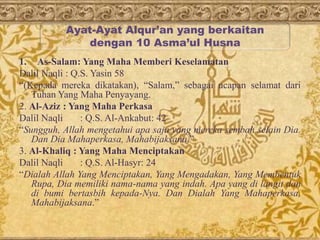 Ayat-Ayat Alqur'an yang berkaitan
dengan 10 Asma'ul Husna
1. As-Salam: Yang Maha Memberi Keselamatan
Dalil Naqli : Q.S. Yasin 58
“(Kepada mereka dikatakan), “Salam,” sebagai ucapan selamat dari
Tuhan Yang Maha Penyayang.
2. Al-Aziz : Yang Maha Perkasa
Dalil Naqli : Q.S. Al-Ankabut: 42
“Sungguh, Allah mengetahui apa saja yang mereka sembah selain Dia.
Dan Dia Mahaperkasa, Mahabijaksana.”
3. Al-Khaliq : Yang Maha Menciptakan
Dalil Naqli : Q.S. Al-Hasyr: 24
“Dialah Allah Yang Menciptakan, Yang Mengadakan, Yang Membentuk
Rupa, Dia memiliki nama-nama yang indah. Apa yang di langit dan
di bumi bertasbih kepada-Nya. Dan Dialah Yang Mahaperkasa,
Mahabijaksana.”